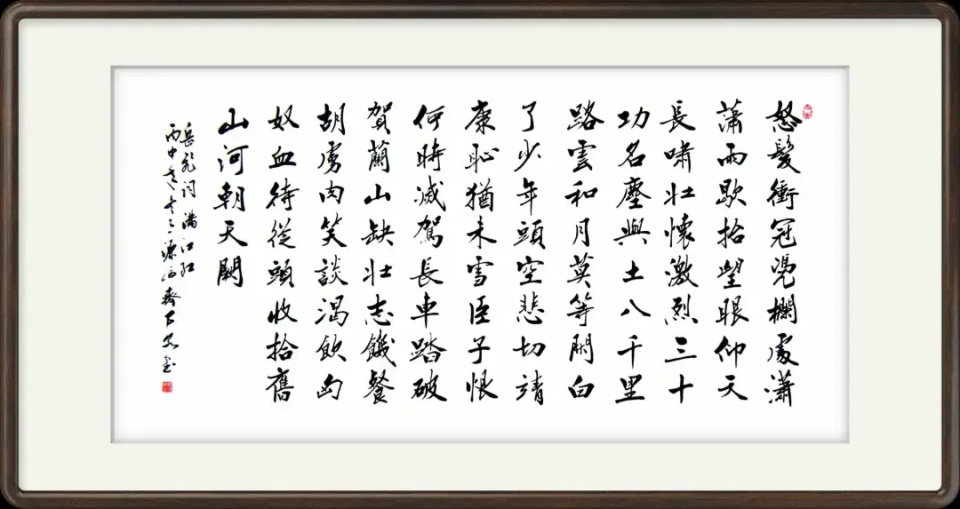 怒髮衝冠凴欄處瀟
蕭雨歇抬望眼仰天
長嘯壯懷激烈三十
功名塵與土八千里
路雲和月莫等閑白
了少年頭空悲切靖
康恥猶未雪臣子恨
何時滅駕長車踏破
賀蘭山缺壯志饑餐
胡虜肉笑談渴飲匈
奴血待從頭收拾舊
山河朝天闕
岳飛詞滿江紅
丙申